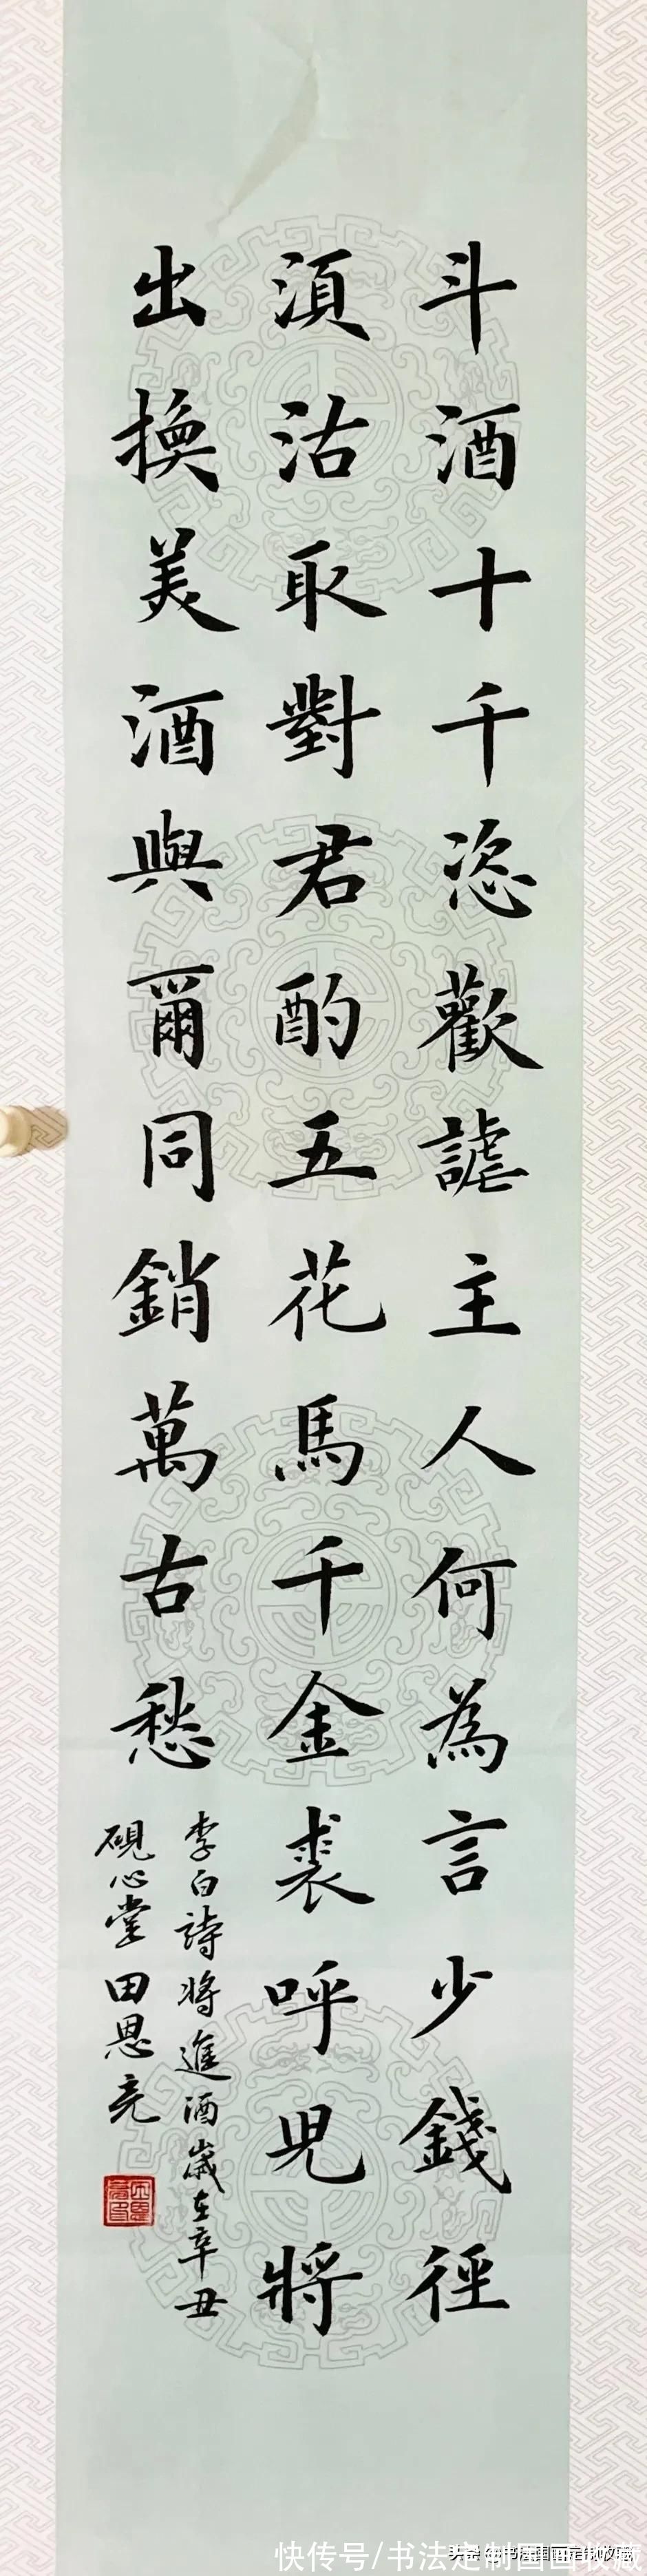 斗酒十千恣歡謔主人何為言少錢徑
須沽取對君酌五花馬千金裘呼兒將
出換美酒與爾同銷萬古愁
李白詩將進酒歲在辛丑
硯心堂田恩亮
快传号/书法定制国画收藏